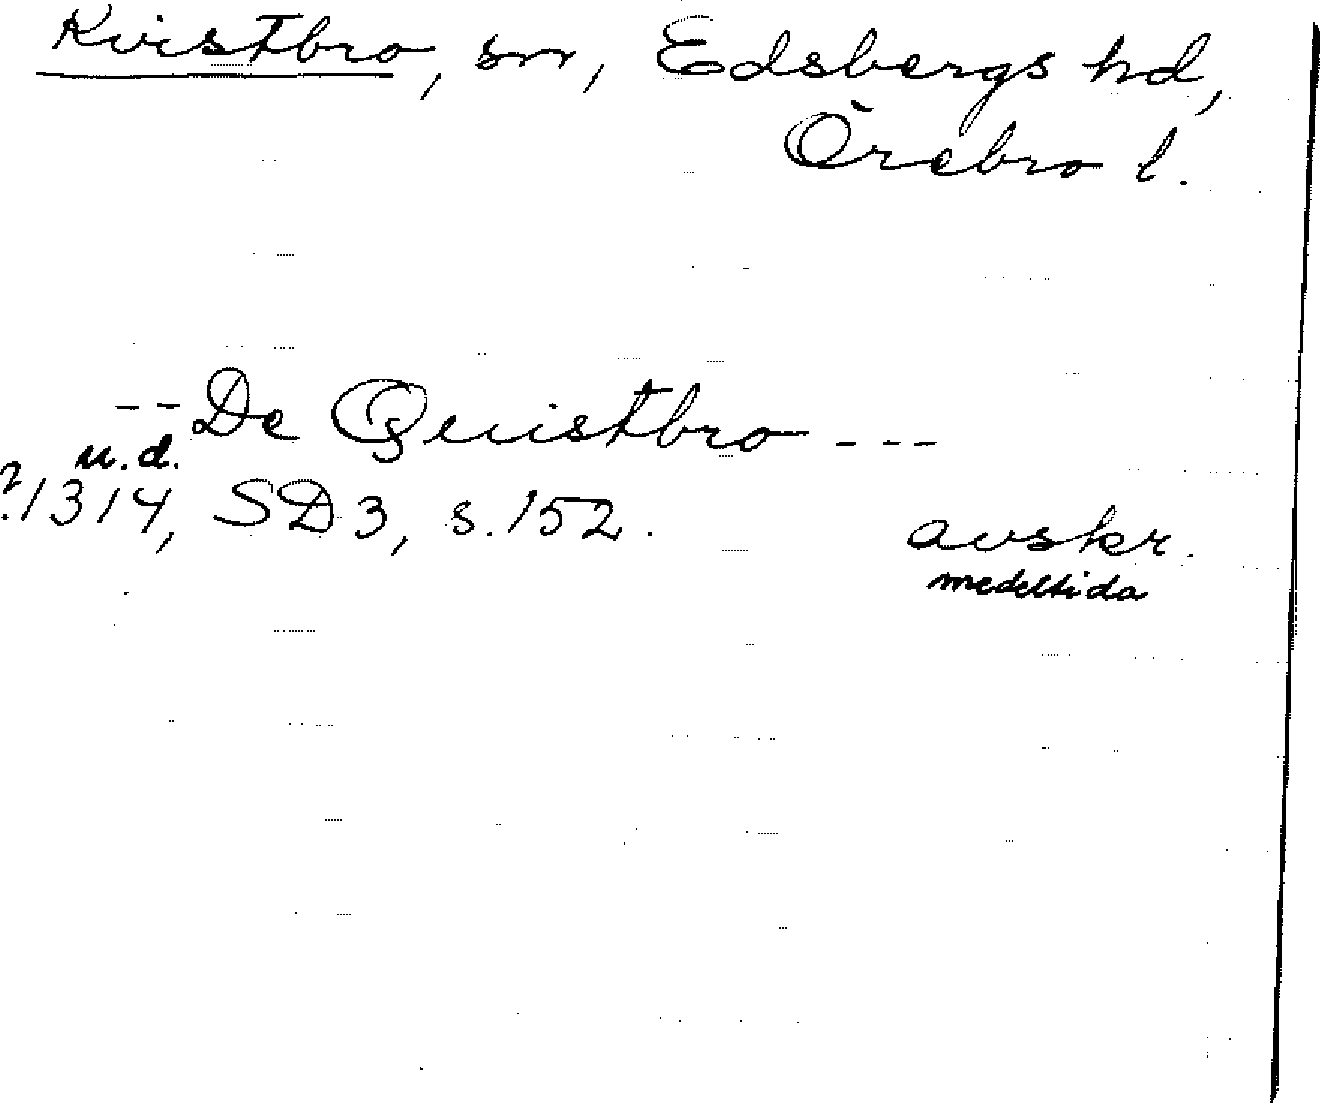 Kvistbro, sn, Edsbergs hd,
Örebro l.
-- De Quistbro ---
u.d.
?1314, SD3, s. 152.
avskr.
medeltida